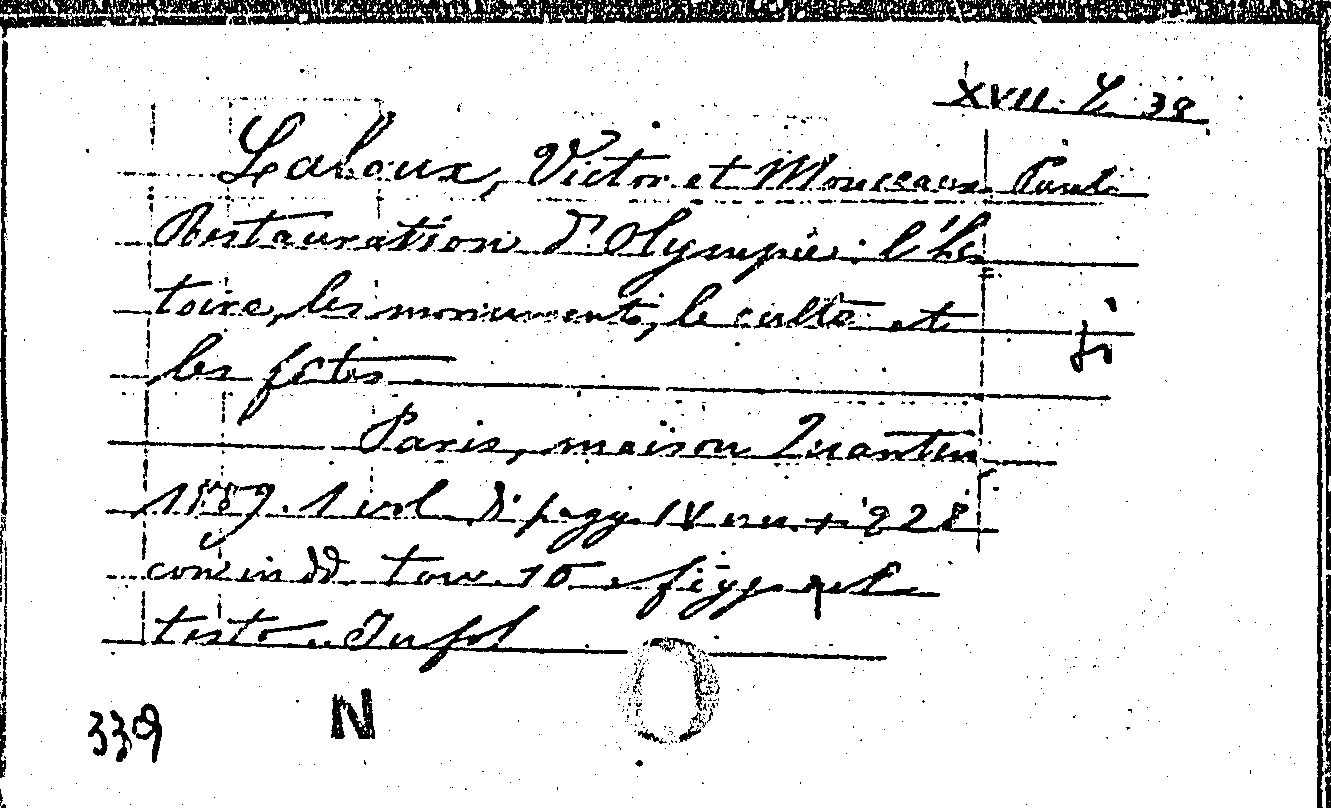 XVII. Z. 38
Laloux, Victor et Monceaux Paul
Restauration d'Olympie: l'his
toire, les monuments, le culte et
les fêtes
Paris, maison Quantin
1889. 1 vol di pagg. IV nn. + 228
con in dd tavv. 15 e figg. nel
testo. In fol
339
N